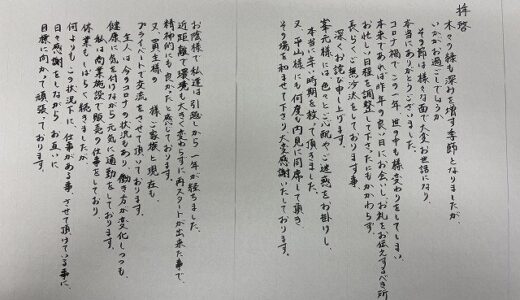 拝啓
木々の緑も深みを増す季節となりましたが、
いかがお過ごしでしょうか
その節は様々な面で大変お世話になり、
本当にありがとうございました。
コロナ禍でこの一年世の中も様変わりをしてしまい、
本来であれば昨年の良い日にお会いしお礼をお伝えするべき所
お忙しい日程を調整して下さったにもかかわらず、
長らくご無沙汰をしております事
深くお詫び申し上げます。
峯元様には色々とご心配やご迷惑をお掛けし、
本当に辛い時期を救って頂きました。
又、平山様にも何度も内見に同席して頂き
その場を和ませて下さり大変感謝いたしております。
お陰様で私達は引越しから一年が経ちました。
近距離で環境も大きく変わらずに再スタートが出来た事で、
精神的にも良かったと感じております。
又、買主様の 様ご家族と現在も、
プライベートで交流をさせて頂いております。
主人は今のコロナの状況もあり働き方が変化しつつも、
健康に気を付けながら元気に通勤をしております。
私は商業施設で販売の仕事をしており
休業もしばらく続きましたが、
何よりもこの状況下に仕事がある事、させて頂けている事に、
日々感謝をしながらお互いに、
目標に向かって頑張っております。